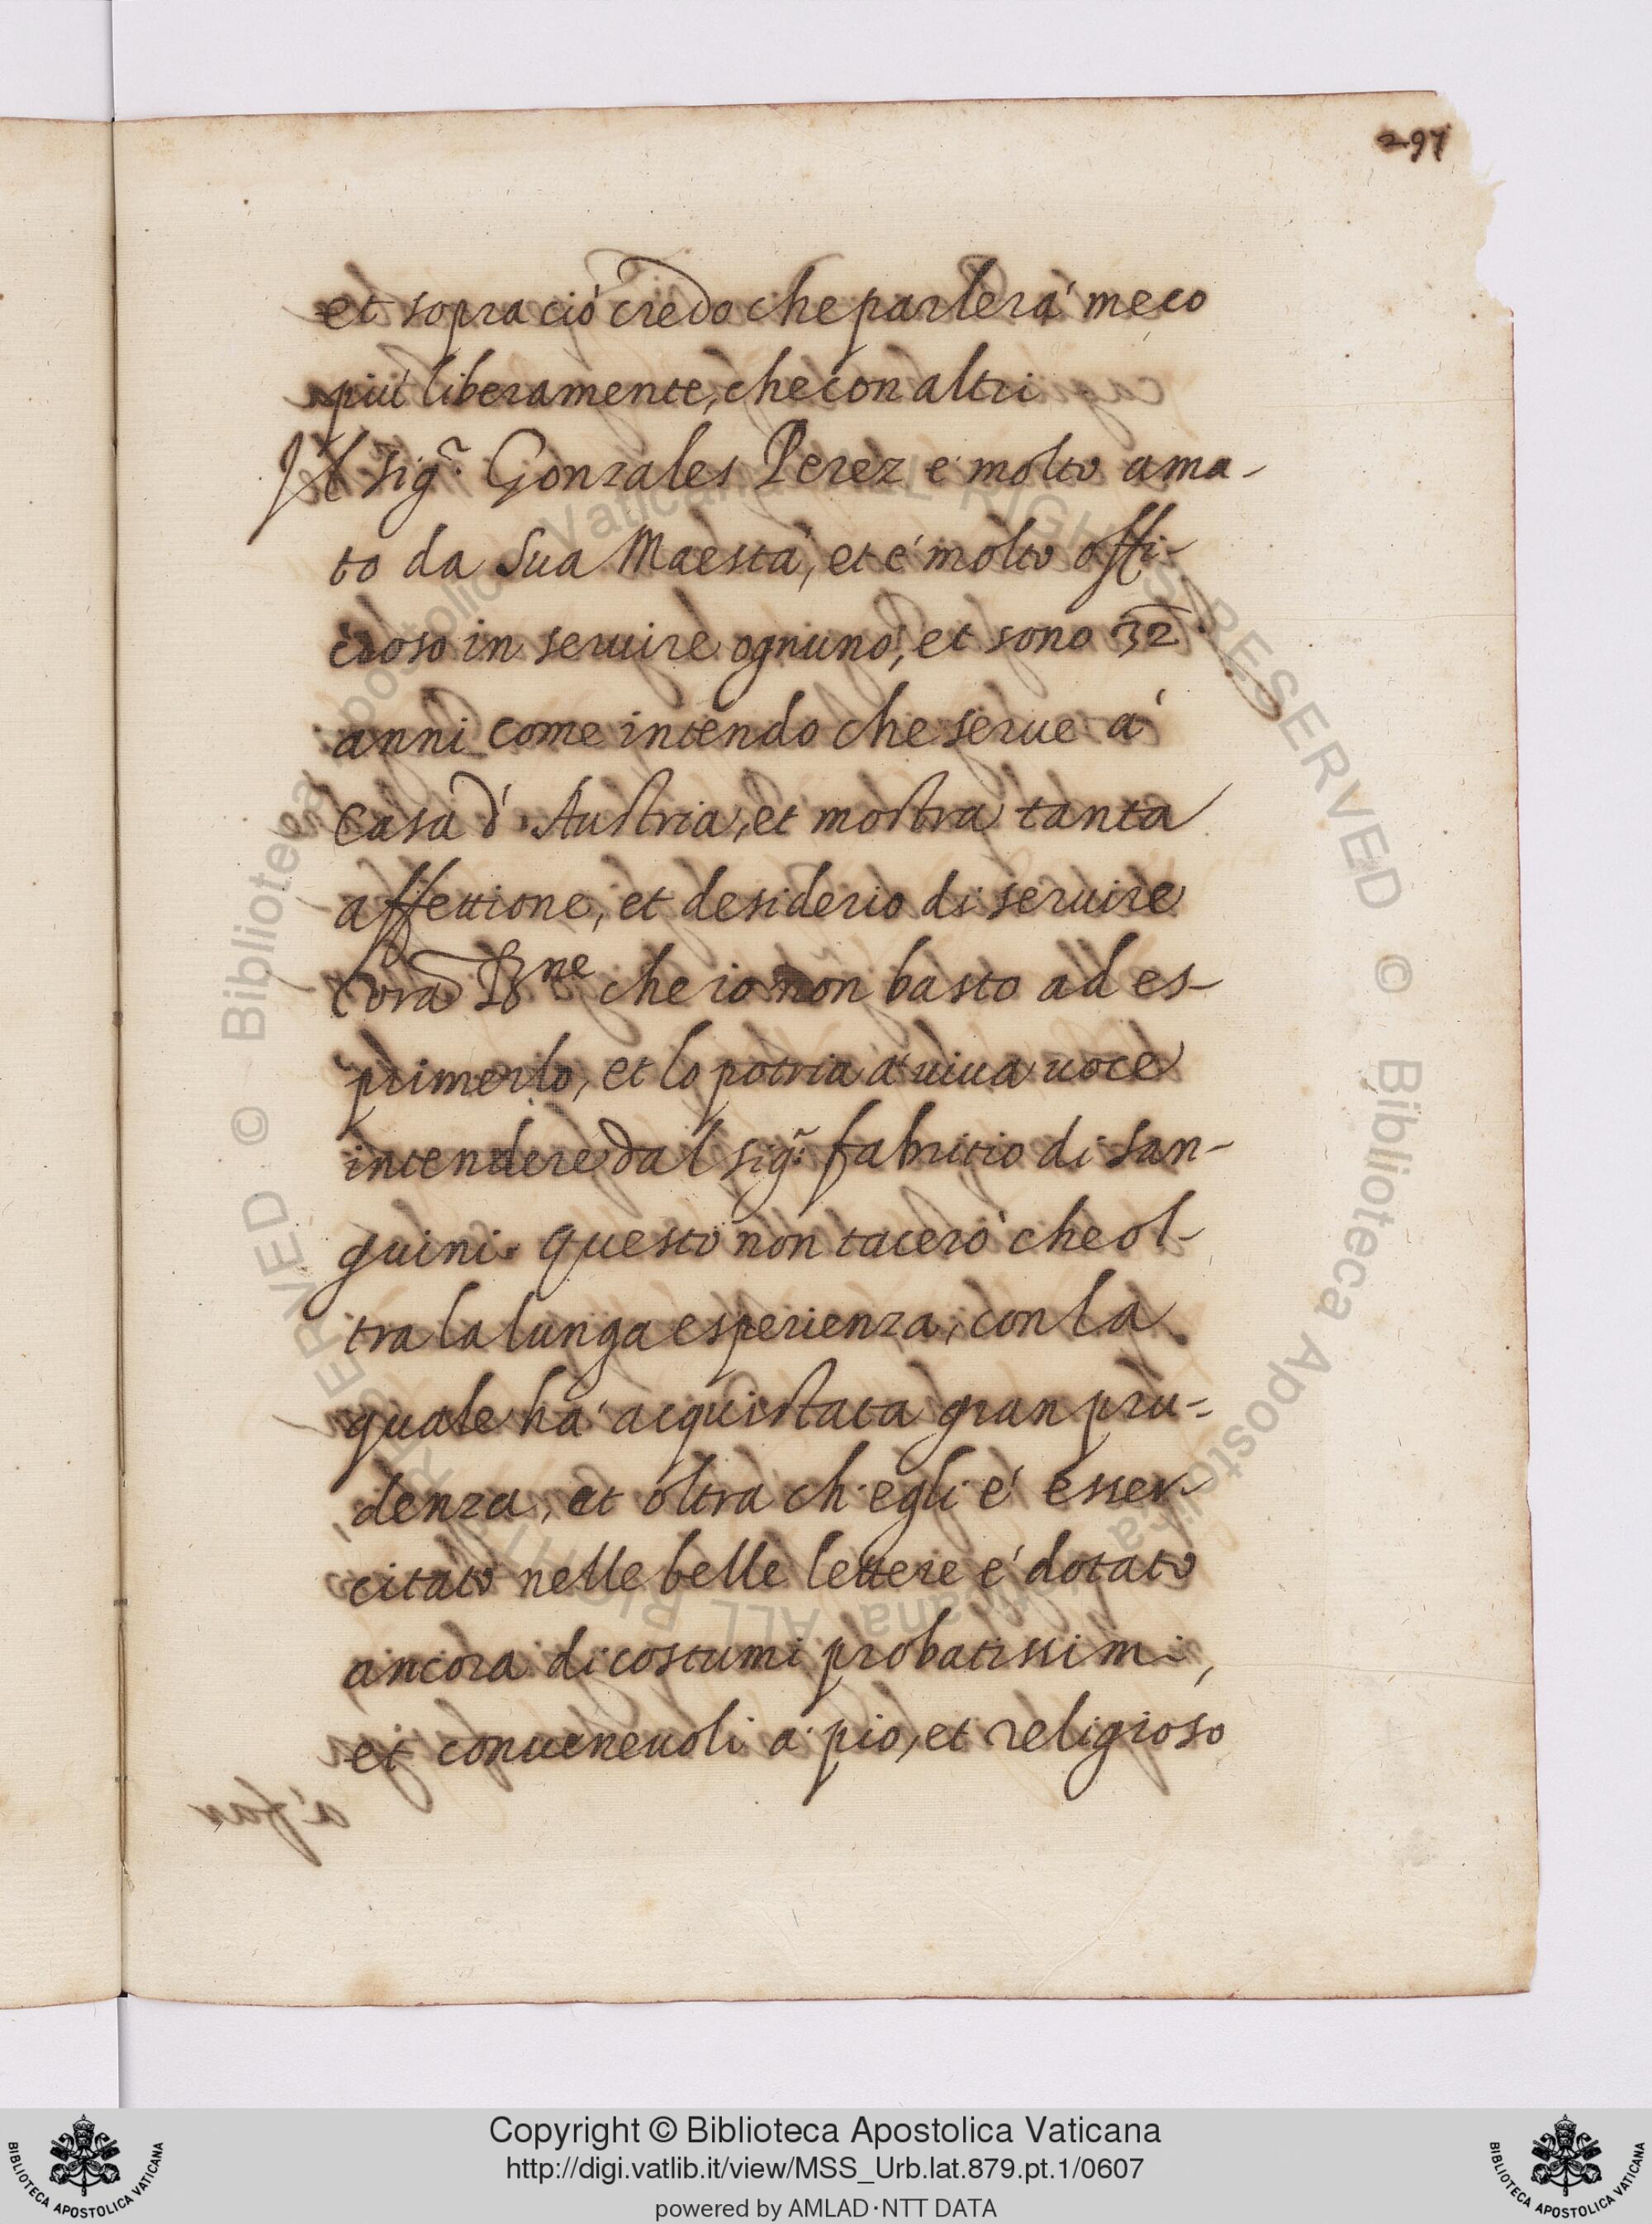 297
et sopra ciò credo che parlerà meco
più liberamente, che con altri
Il sig.r Gonzales Perez e molto ama-
to da Sua Maestà, et é molto offi-
cioso in seruire ogniuno, et sono 32
anni come intendo che serue á
Casa d'Austria, et mostra tanta
affettione, et desiderio di seruire
che io non basto ad es-
primerlo, et lo potria á uiua uoce
intendere dal sig.r fabritio di San-
guini. Questo non tacerò che ol-
tra la lunga esperienza, con la
quale há acquistata gran pru-
denza, et oltra ch'egli é esser-
citato nelle belle lettere é dotato
ancora di costumi probatissimi,
et conueneuoli a pio, et religioso
© Biblioteca Apostolica Vaticana ALL RIGHTS RESERVED
© Biblioteca Apostolica Vaticana ALL RIGHTS RESERVED
Copyright © Biblioteca Apostolica Vaticana
http://digi.vatlib.it/view/MSS_Urb.lat.879.pt.1/0607
powered by AMLAD·NTT DATA
BIBLIOTECA APOSTOLICA VATICANA
BIBLIOTECA APOSTOLICA VATICANA